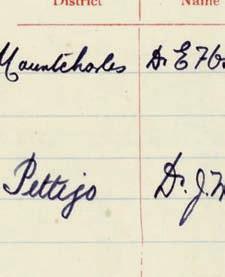 District Name
Mountcharles Dr E
Pettigo Dr. J.